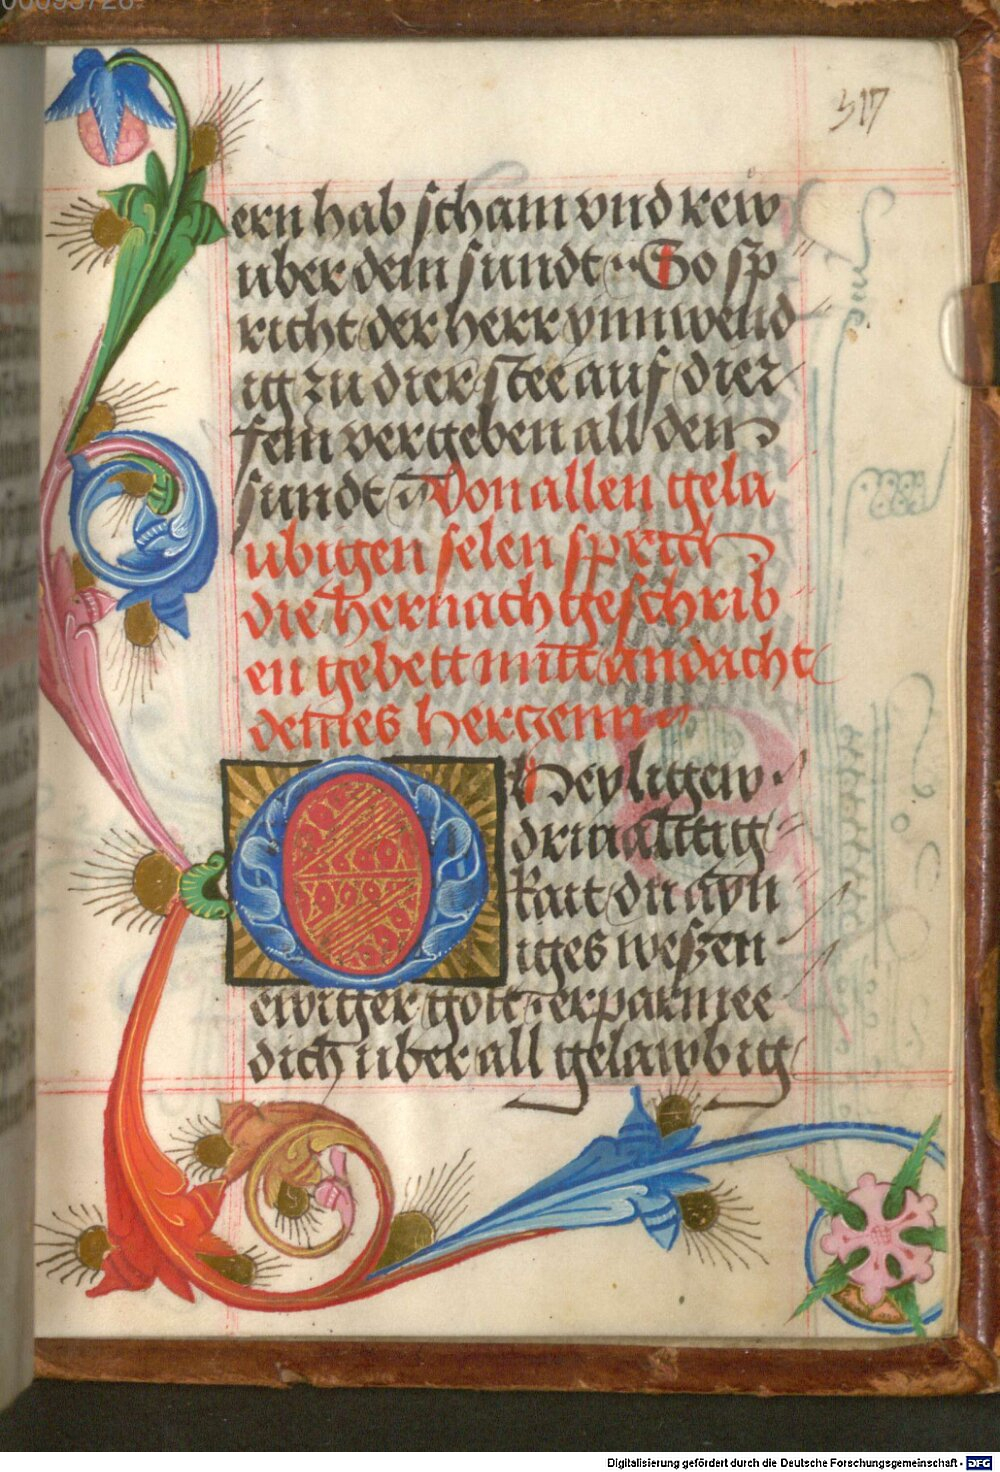 317
ern hab scham vnd rew
uber dein sundt So sp
richt der herr ynnwend
ig zu dier stee auf dier
sein vergeben all dein
sundt Von allen gela
ubigen selen sprich
die hernach geschrib
en gebett mitt andacht
deines herzenn
O Heyligew
drifaltig
kait du ayn
iges weszen
ewiger gott erparmee
dich uber all gelawbig
Digitalisierung gefördert durch die Deutsche Forschungsgemeinschaft - DFG